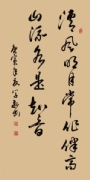 清風明月常作伴高
山流水是知音